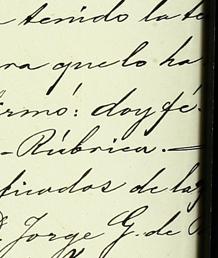 tenido la te
ra que lo ha
irmó: doy fé.
-Rúbrica.-
ficados de la
Jorge G. de